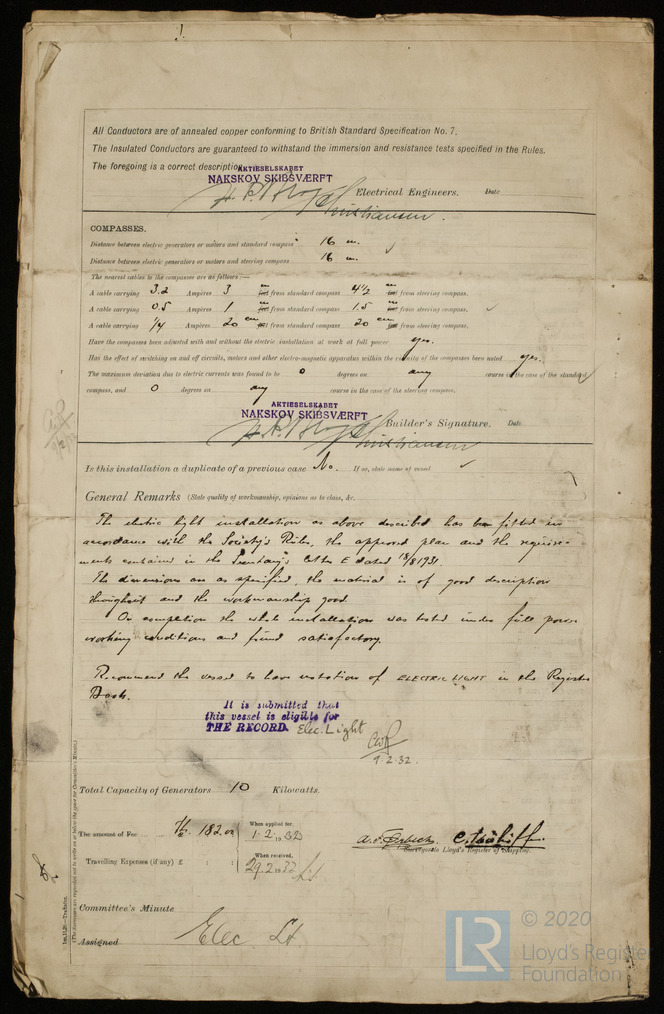 All Conductors are of annealed copper conforming to British Standard Specification No. 7.
The Insulated Conductors are guaranteed to withstand the immersion and resistance tests specified in the Rules.
The foregoing is a correct description.
AKTIESELSKABET
NAKSKOV SKIBSVÆRFT
Christiansen. Electrical Engineers. Date
COMPASSES.
Distance between electric generators or motors and standard compass 16 m.
Distance between electric generators or motors and steering compass 16 m.
The nearest cables to the compasses are as follows:—
A cable carrying 3.2 Ampères 3 m feet from standard compass 4½ m feet from steering compass.
A cable carrying 0.5 Ampères 1 m feet from standard compass 1.5 m feet from steering compass.
A cable carrying ¼ Ampères 20 cm feet from standard compass 20 cm feet from steering compass.
Have the compasses been adjusted with and without the electric installation at work at full power yes.
Has the effect of switching on and off circuits, motors and other electro-magnetic apparatus within the vicinity of the compasses been noted yes.
The maximum deviation due to electric currents was found to be 0 degrees on any course in the case of the standard
compass, and 0 degrees on any course in the case of the steering compass.
AKTIESELSKABET
NAKSKOV SKIBSVÆRFT
Christiansen Builder's Signature. Date
Is this installation a duplicate of a previous case No. If so, state name of vessel
General Remarks (State quality of workmanship, opinions as to class, &c.
The electric light installation as above described has been fitted in
accordance with the Society's Rules, the approved plan and the require-
ments contained in the Secretary's letter E dated 18/8 1931.
The dimensions are as specified, the material is of good description
throughout and the workmanship good.
On completion the whole installation was tested under full power
working conditions and found satisfactory.
Recommend the vessel to have notation of ELECTRIC LIGHT in the Register
Book.
It is submitted that
this vessel is eligible for
THE RECORD. Elec. Light
9.2.32.
Total Capacity of Generators 10 Kilowatts.
The amount of Fee ... 182.00 When applied for, 1.2.1932
Travelling Expenses (if any) £ : : When received, 29.2.1932
Surveyor to Lloyd's Register of Shipping.
Committee's Minute
Assigned Elec. Lt.
(The Surveyors are requested not to write on or below the space for Committee's Minute.)
© 2020
LR Lloyd's Register
Foundation